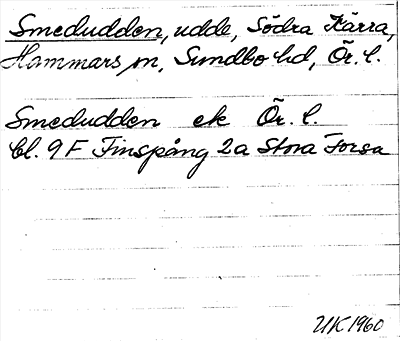 Smedudden, udde, Södra Kärra,
Hammars sn, Sundbo hd, Ör. l.
Smedudden ek Ör. l.
Bl. 9 F Finspång 2a Stora Forsa
UK 1960